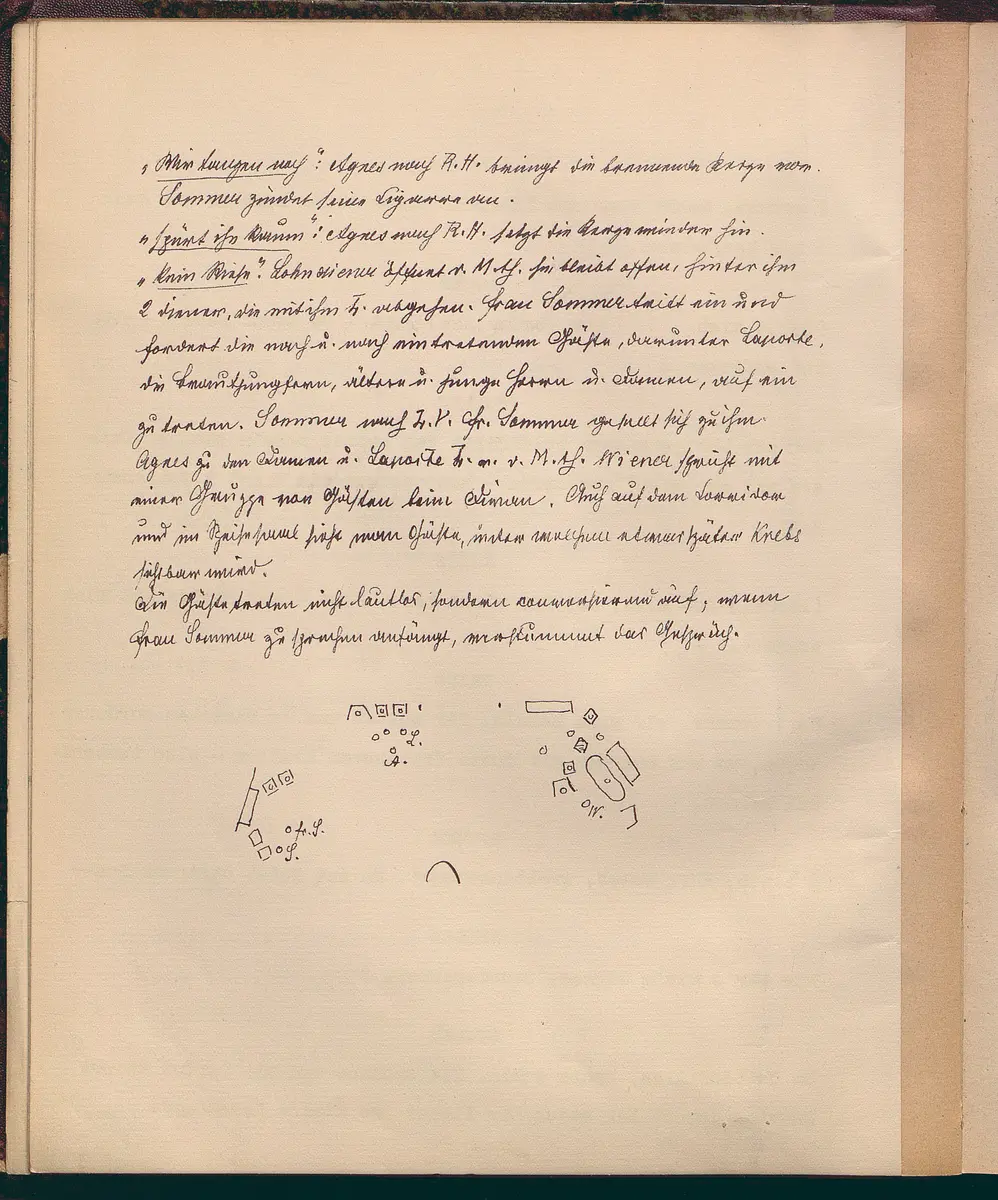 „Wir tanzen nach“: Agnes nach R. H. bringt die brennende Kerze vor.
Sommer zündet seine Cigarre an.
„spürt ihr kaum“: Agnes nach R. H. setzt die Kerze wieder hin.
„kein Riese“: Lohndiener öffnet d. M. th. sie bleibt offen, hinter ihm
2 Diener, die mit ihm L. abgehen. Frau Sommer tritt ein und
fordert die nach u. nach eintretenden Gäste, darunter Laporte,
die Brautjungfern, ältere u. junge Herrn u. Damen, auf ein
zu treten. Sommer nach L. V. Fr. Sommer gesellt sich zu ihm
Agnes zu den Damen u. Laporte L. v. d. M. th. Wiener spricht mit
einer Gruppe von Gästen beim Divan. Auch auf dem Corridor
und im Speisesaal sieht man Gäste, unter welchen etwas später Krebs
sichtbar wird.
Die Gäste treten nicht lautlos, sondern conversierend auf, wenn
Frau Sommer zu sprechen anfängt, verstummt das Gespräch.
L.
A.
W.
fr. S.
S.